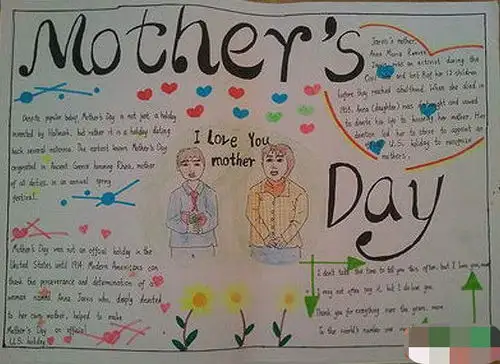 Mother's
Day
I Love You
mother
Despite popular belief, Mother's Day is not just a holiday
invented by Hallmark, but rather it is a holiday dating
back several millennia. The earliest known Mother's Day
originated in Ancient Greece honoring Rhea, mother
of all deities, in an annual spring
festival.
Jarvis's mother,
Anna Maria Reeves
Jarvis was an activist during the
and lost 8 of her 12 children
before they reached adulthood. When she died in
Anna (daughter) was and vowed
to devote his life to her mother. Her
devotion led her to to appoint an
U.S. holiday to recognize
mothers.
Mother's Day was not an official holiday in the
United States until 1914. Modern Americans can
thank the perseverance and determination of a
woman named Anna Jarvis who, deeply devoted
to her own mother, helped to make
Mother's Day an official
U.S. holiday.
I don't take the time to tell you this often, but I love you, mom
I may not often say it, but I do love you.
Thank you for everything over the years, mom.
To the world's number one